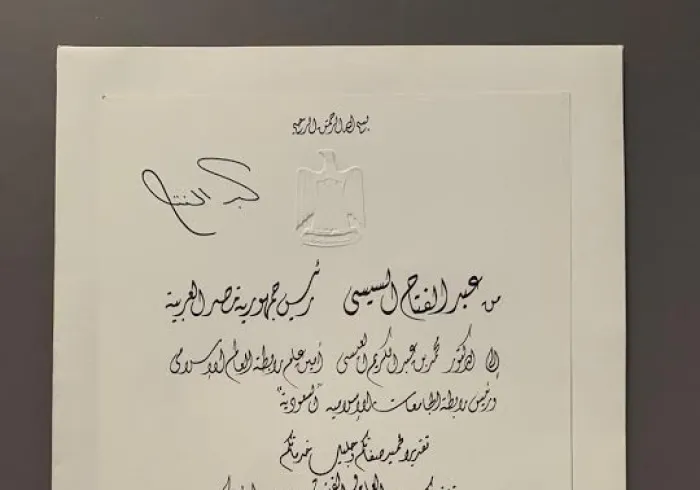 بسم الله الرحمن الرحيم
عبد الفتاح
من عبد الفتاح السيسى رئيس جمهورية مصر العربية
إلى الدكتور محمد بن عبد الكريم العيسى أمين عام رابطة العالم الإسلامى
ورئيس رابطة الجامعات الإسلامية "السعودية"
تقديراً لحميد صفاتكم وجليل خدماتكم